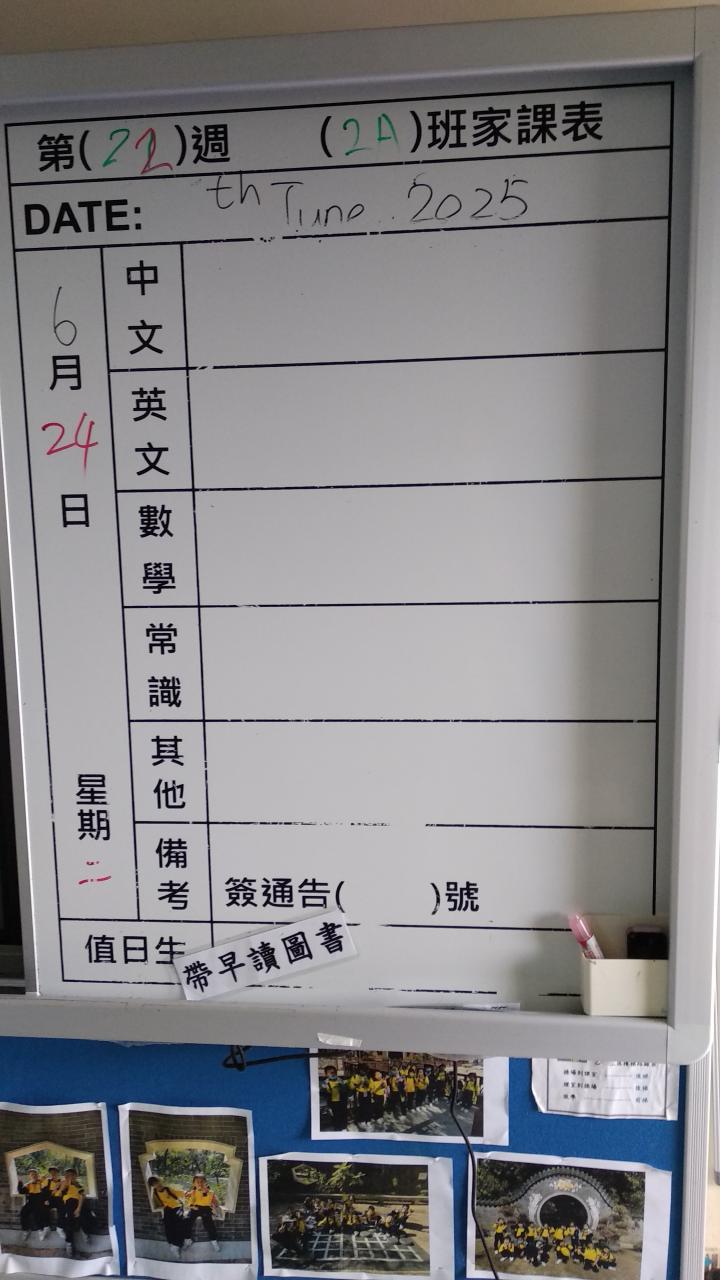 第(22)週 (2A)班家課表
DATE: th June 2025
6月24日 星期二
中文
英文
數學
常識
其他
備考 簽通告( )號
值日生
帶早讀圖書